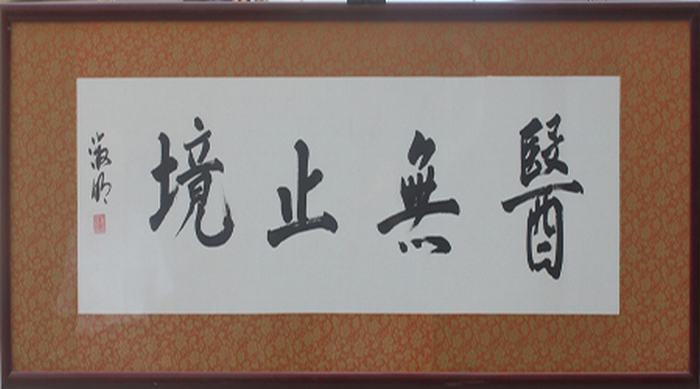 醫無止境